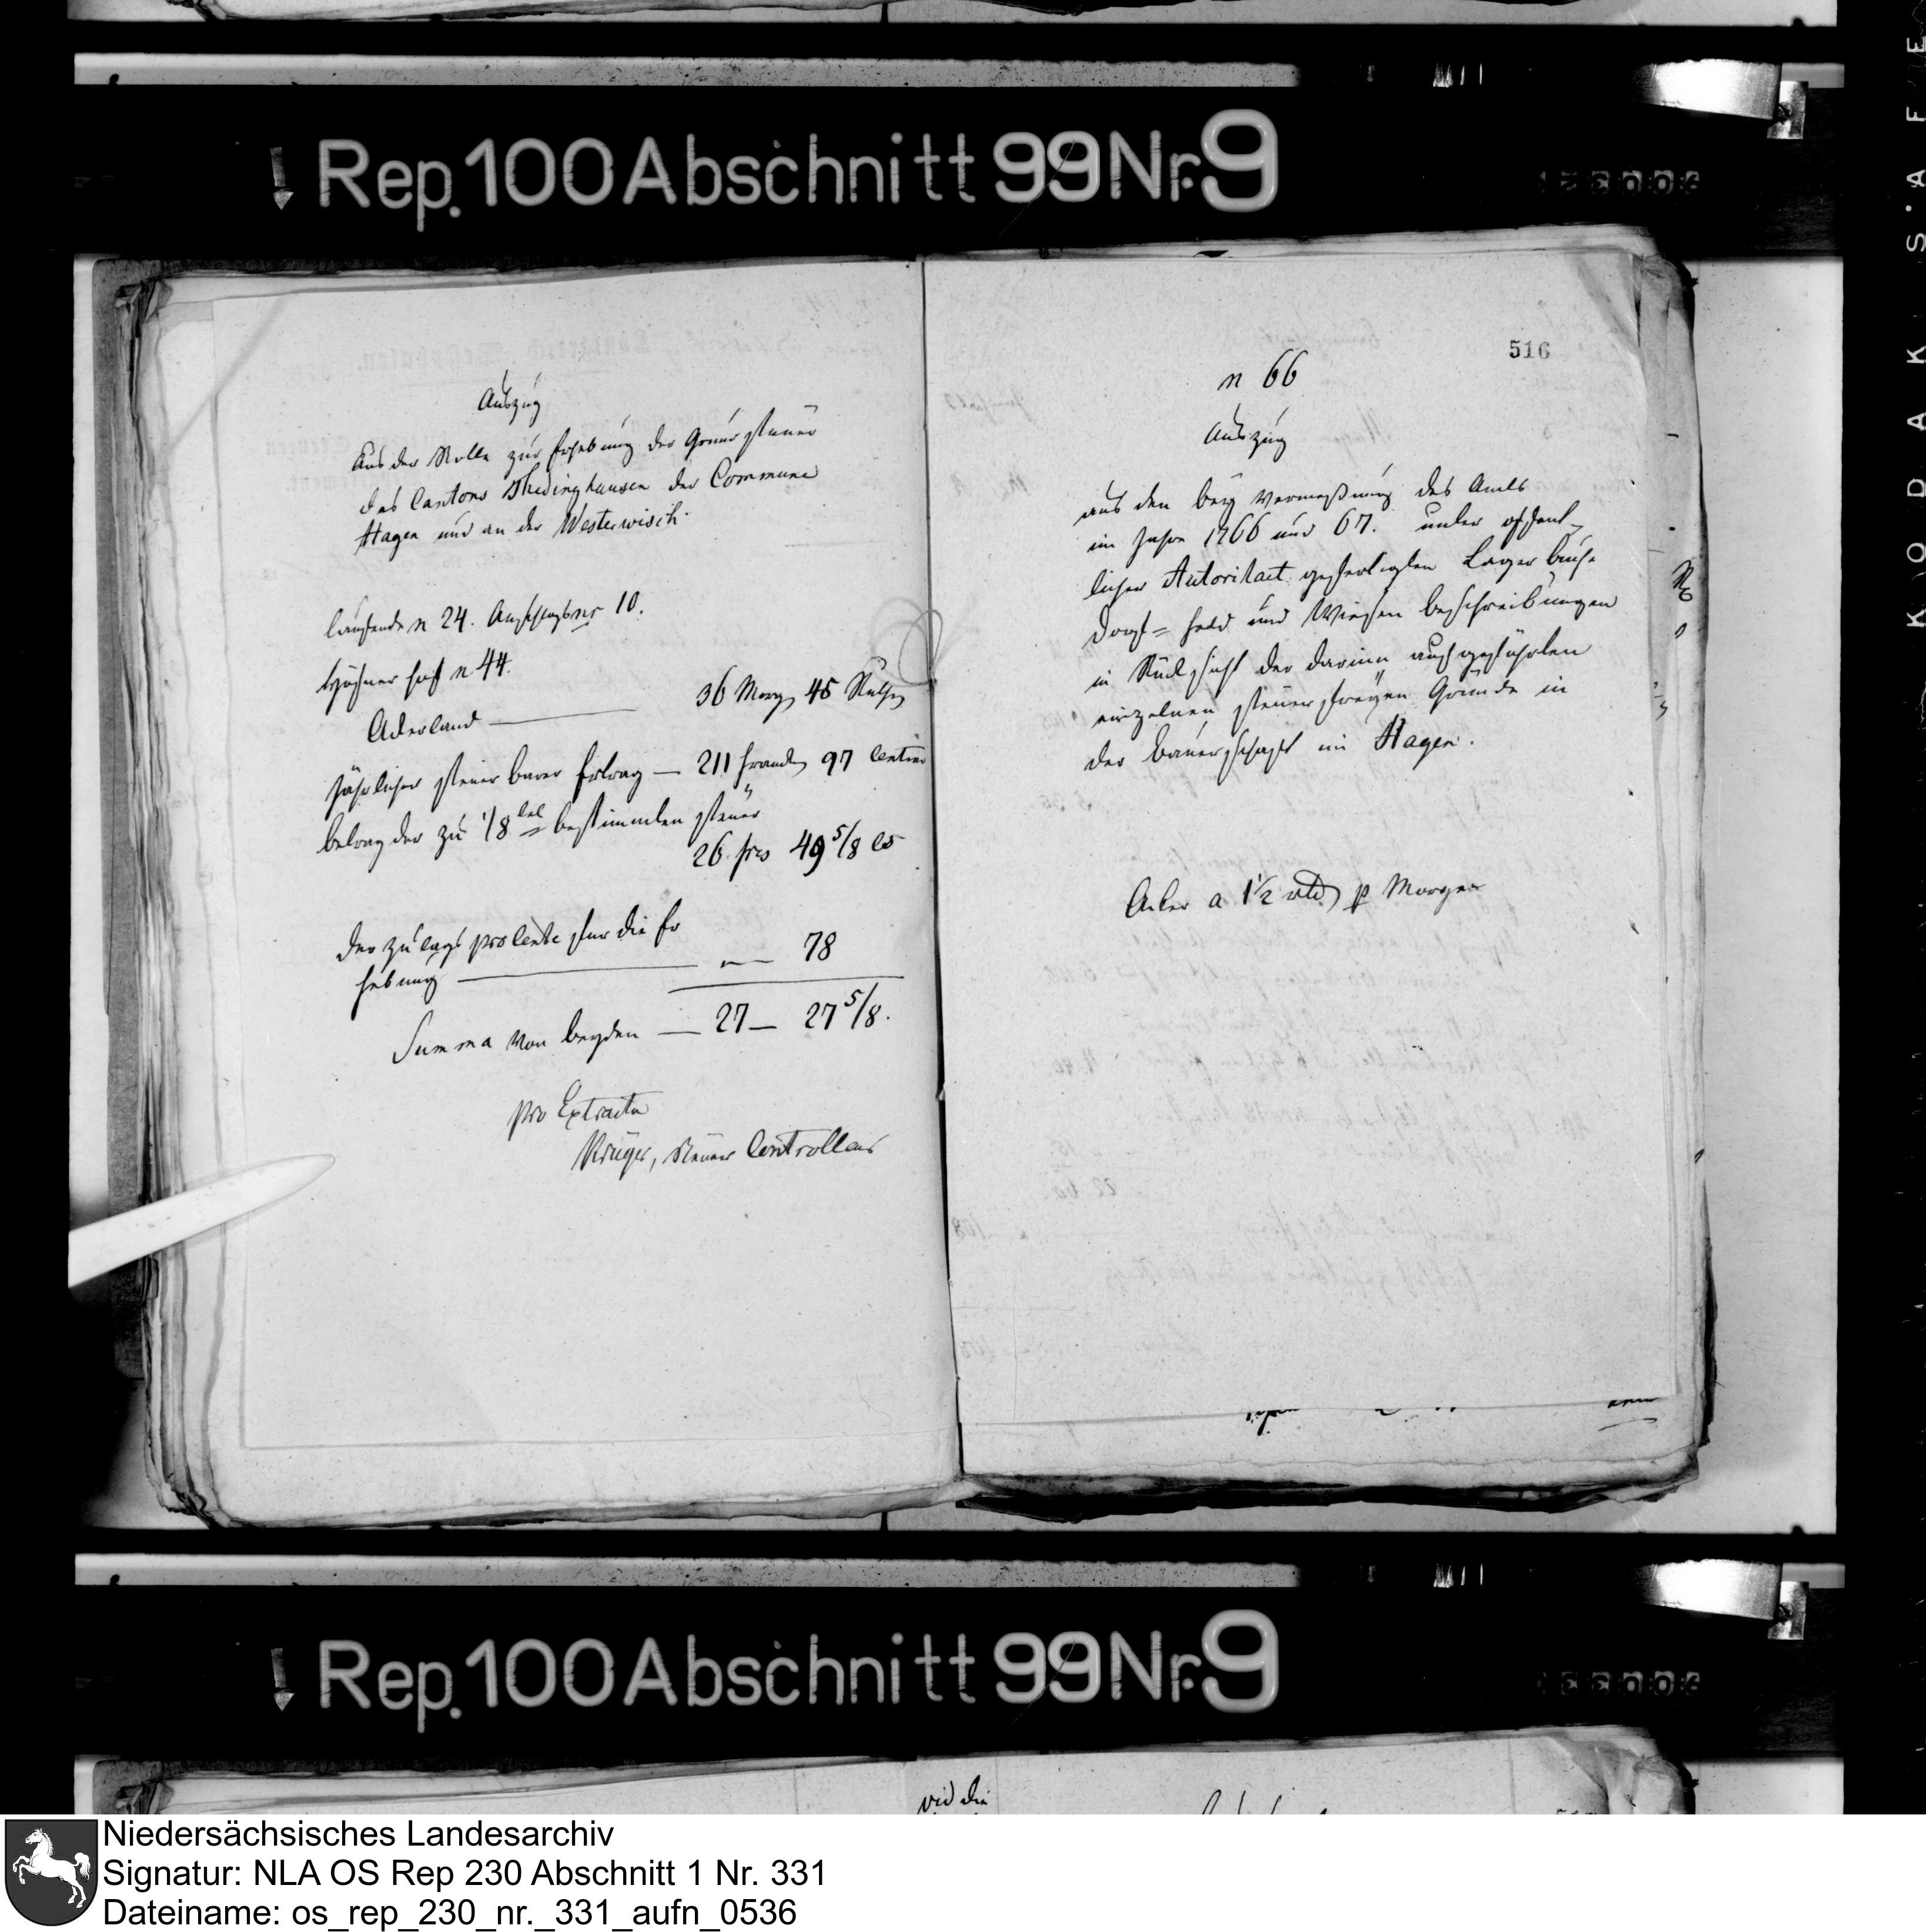 Rep. 100 Abschnitt 99 Nr. 9
Auszug
Aus der Rolle zur Erhebung der Grundsteuer
des Cantons Thedinghausen der Commune
Hagen und an der Westerwisch.
laufende n 24. Anschlags nr 10.
hof n 44.
Ackerland — 36 Morg 45 Ruthen
Jährlicher steuerbarer Ertrag — 211 Franch 97 Centim
betrag der zu 1/8 tel bestimmten steuer
26 frcs 49 5/8 cs
der zulags pro Cente fur die Er
hebung — 78
Summa von beyden — 27 — 27 5/8.
pro Extractu
Krüger, Steuer Controlleur
516
n 66
Auszug
aus den bey Vermeßung des Amts
im Jahre 1766 und 67. unter offent-
licher Autoritaet gefertigten Lager buch
Dorf= Feld und Wiesen beschreibungen
in Rücksicht der darinn aufgeführten
einzelnen steuerfreyen Gründe in
der bauerschaft im Hagen.
Acker a 1 1/2 p Morgen
Rep. 100 Abschnitt 99 Nr. 9
vid die
KODAK SAFE
Niedersächsisches Landesarchiv
Signatur: NLA OS Rep 230 Abschnitt 1 Nr. 331
Dateiname: os_rep_230_nr._331_aufn_0536